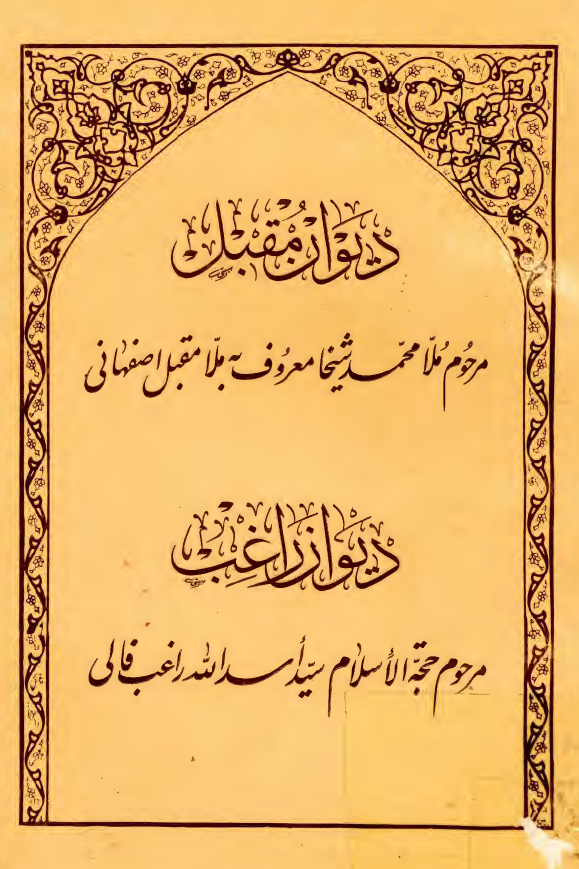 دیوان مُقبل
مرحُوم مُلّا محمّد شیخا معرُوف به مُلّا مقبل اصفهانی
دیوان رَاغِب
مرحوم حجّة الأسلام سیّد أسد الله راغب فالی